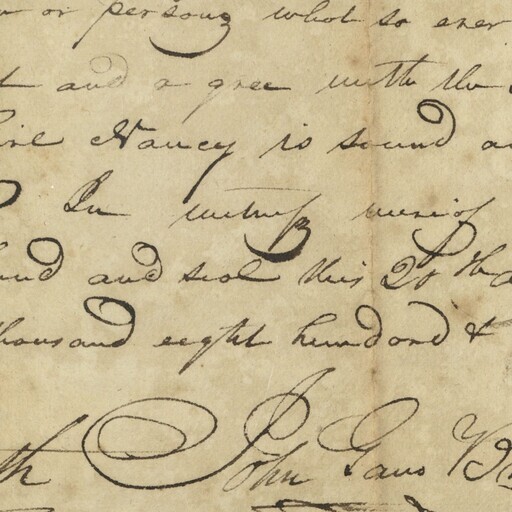 or persons whot so ever
and a gree with the
Nancy is sound
In witness
and seal this 28th
thousand eeght hundord &
John Gaus